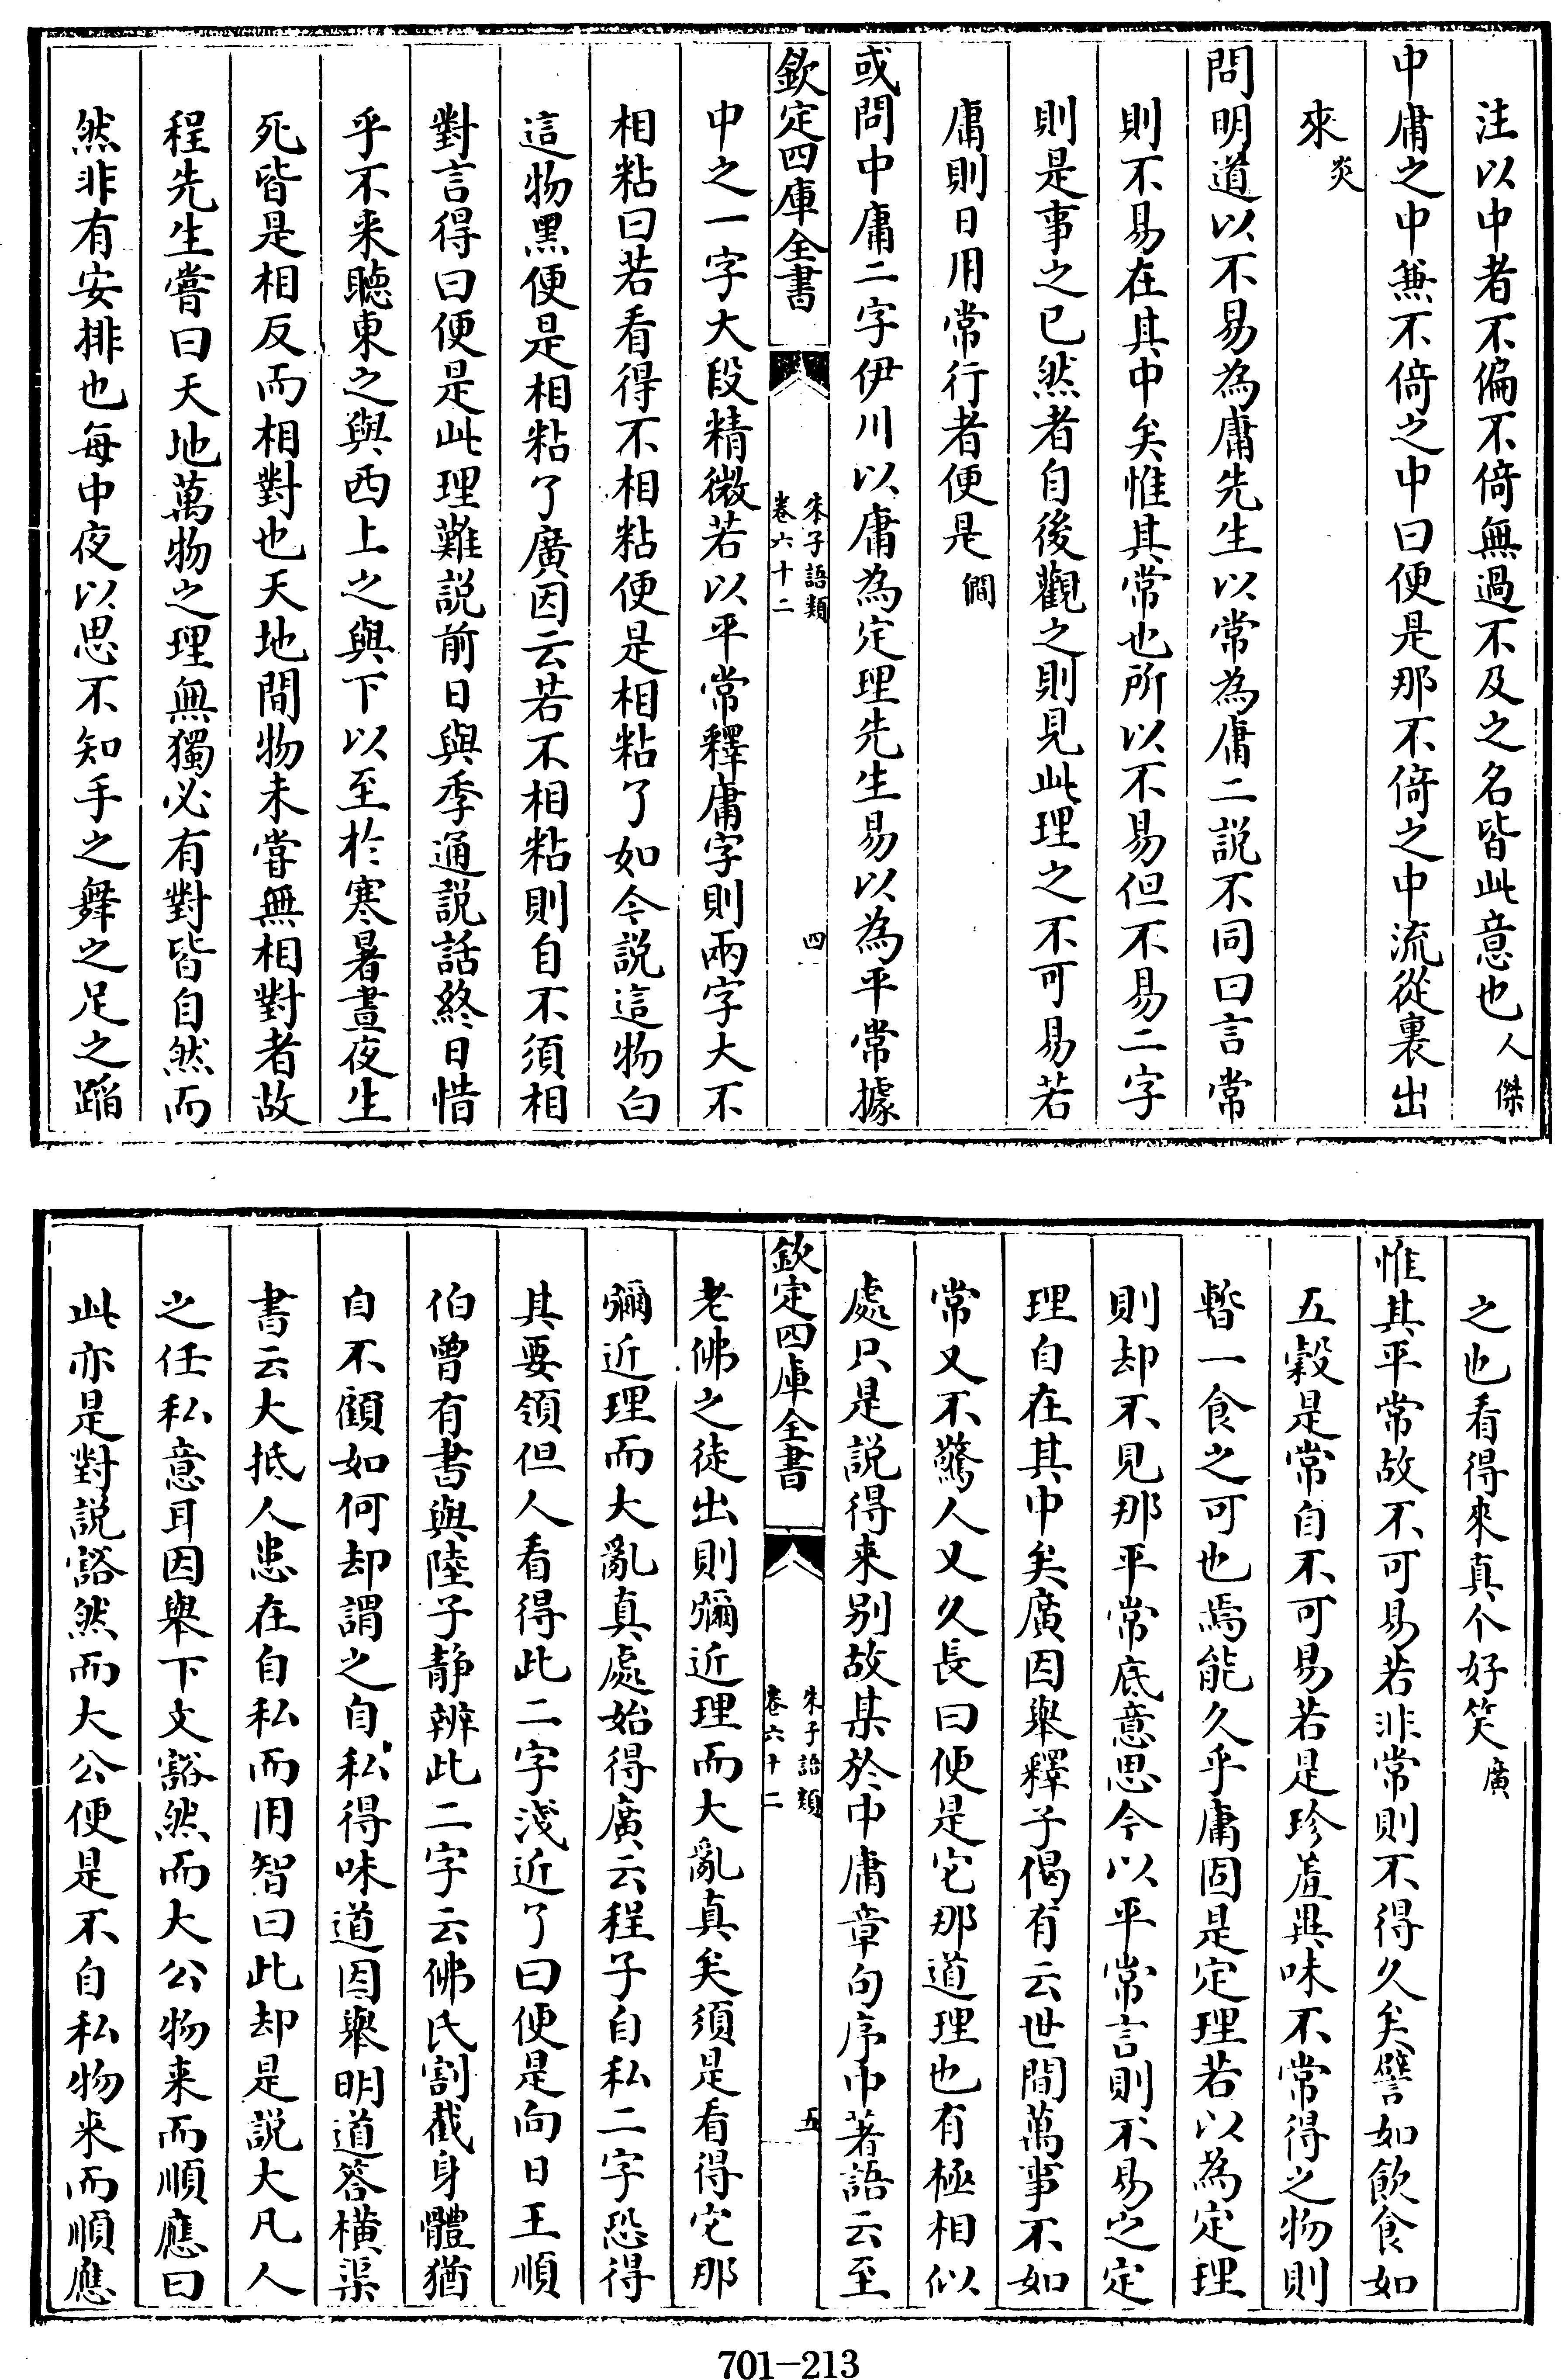 注以中者不偏不倚無過不及之名皆此意也人傑
中庸之中兼不倚之中曰便是那不倚之中流從裏出
來炎
問明道以不易為庸先生以常為庸二説不同曰言常
則不易在其中矣惟其常也所以不易但不易二字
則是事之已然者自後觀之則見此理之不可易若
庸則日用常行者便是僩
或問中庸二字伊川以庸為定理先生易以為平常據
欽定四庫全書
朱子語類
卷六十二
四
中之一字大段精微若以平常釋庸字則兩字大不
相粘曰若看得不相粘便是相粘了如今説這物白
這物黑便是相粘了廣因云若不相粘則自不須相
對言得曰便是此理難説前日與季通説話終日惜
乎不来聽東之與西上之與下以至於寒暑晝夜生
死皆是相反而相對也天地間物未嘗無相對者故
程先生嘗曰天地萬物之理無獨必有對皆自然而
然非有安排也每中夜以思不知手之舞之足之蹈
之也看得來真个好笑廣
惟其平常故不可易若非常則不得久矣譬如飲食如
五穀是常自不可易若是珍羞異味不常得之物則
暫一食之可也焉能久乎庸固是定理若以為定理
則却不見那平常底意思今以平常言則不易之定
理自在其中矣廣因舉釋子偈有云世間萬事不如
常又不驚人又久長曰便是它那道理也有極相似
處只是説得来别故某於中庸章句序中著語云至
欽定四庫全書
朱子語類
卷六十二
五
老佛之徒出則彌近理而大亂真矣須是看得它那
彌近理而大亂真處始得廣云程子自私二字恐得
其要領但人看得此二字淺近了曰便是向日王順
伯曾有書與陸子静辨此二字云佛氏割截身體猶
自不顧如何却謂之自私得味道因舉明道答横渠
書云大抵人患在自私而用智曰此却是説大凡人
之任私意耳因舉下文豁然而大公物来而順應曰
此亦是對説豁然而大公便是不自私物来而順應
701-213